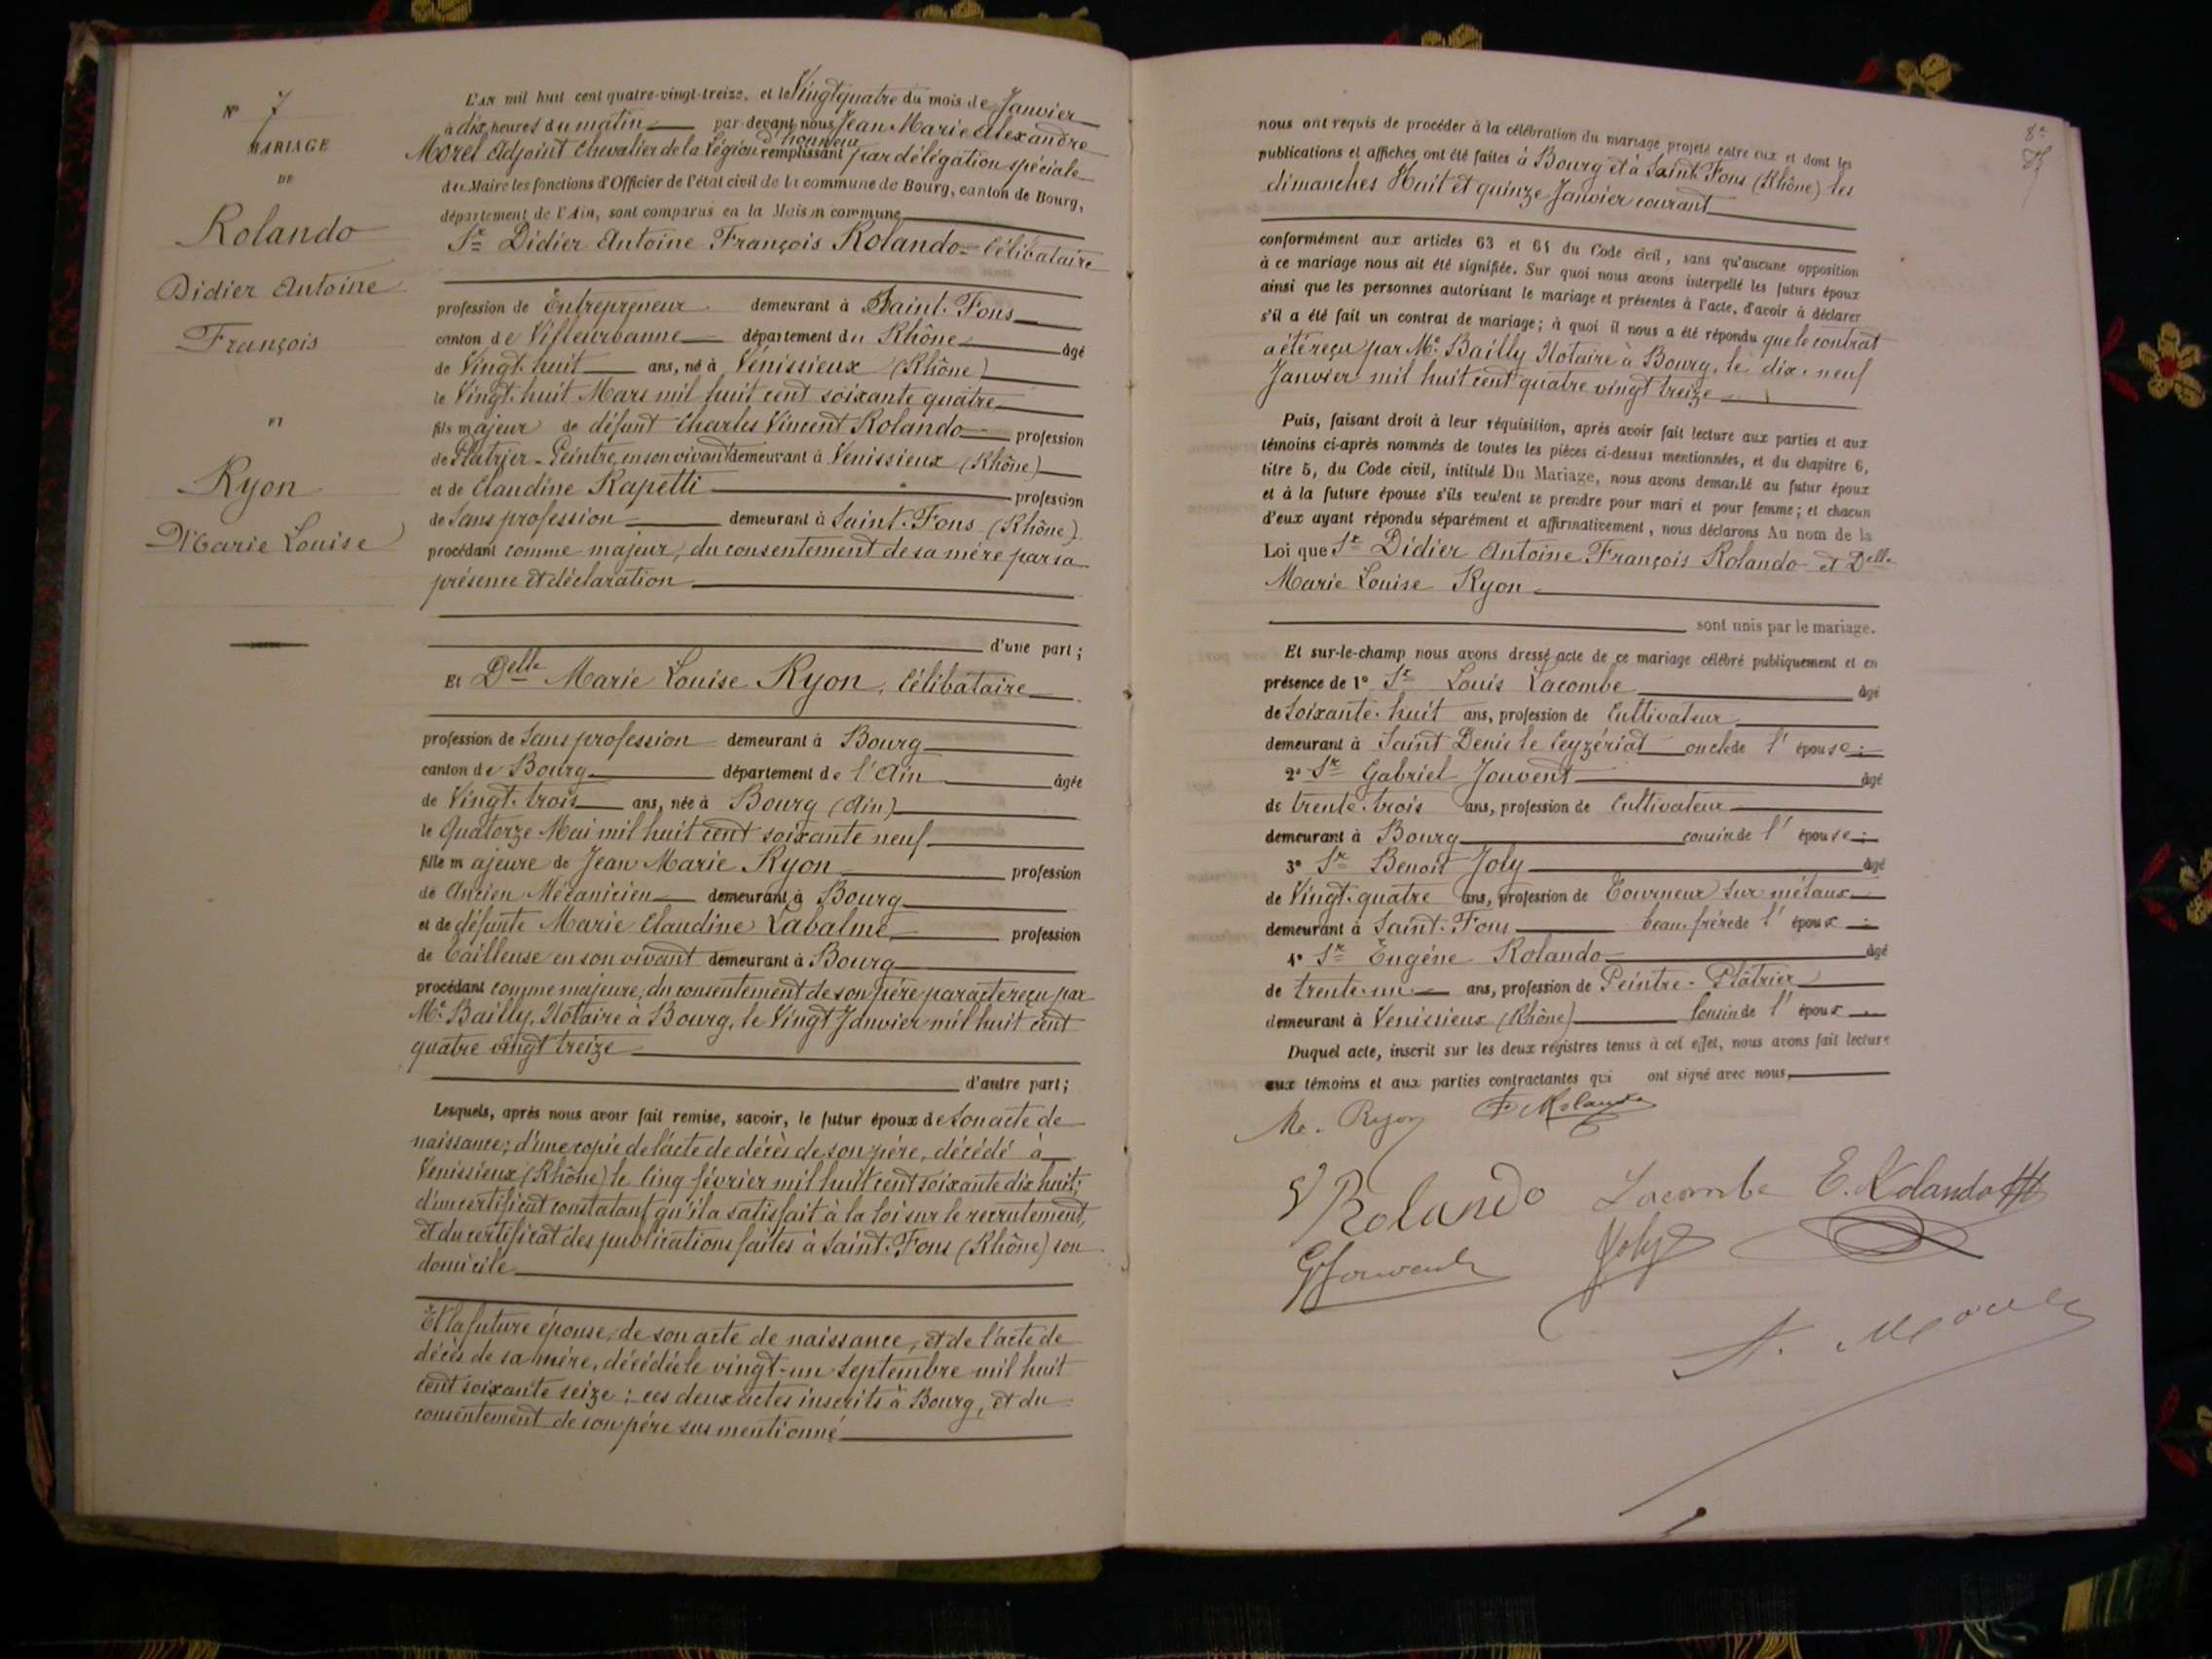 N° 7
MARIAGE
DE
Rolando
Didier Antoine
François
ET
Ryon
Marie Louise
L'AN mil huit cent quatre-vingt-treize, et le Vingt quatre du mois de Janvier
à dix heures du matin par devant nous Jean Marie Alexandre
Morel Adjoint Chevalier de la Légion d'honneur remplissant par délégation spéciale
du Maire les fonctions d'Officier de l'état civil de la commune de Bourg, canton de Bourg,
département de l'Ain, sont comparus en la Maison commune
Sr Didier Antoine François Rolando - Célibataire
profession de Entrepreneur demeurant à Saint. Fons
canton de Villeurbanne département du Rhône âgé
de Vingt. huit ans, né à Vénissieux (Rhône)
le Vingt. huit Mars mil huit cent soixante quatre
fils majeur de défunt Charles Vincent Rolando profession
de Plâtrier - Peintre, en son vivant demeurant à Venissieux (Rhône)
et de Claudine Rapetti profession
de Sans profession demeurant à Saint. Fons (Rhône)
procédant comme majeur, du consentement de sa mère par sa
présence et déclaration
d'une part ;
Et Delle Marie Louise Ryon, Célibataire
profession de Sans profession demeurant à Bourg
canton de Bourg département de l'Ain âgée
de Vingt. trois ans, née à Bourg (Ain)
le Quatorze Mai mil huit cent soixante neuf
fille majeure de Jean Marie Ryon profession
de Ancien Mécanicien demeurant à Bourg
et de défunte Marie Claudine Labalme profession
de Tailleuse en son vivant demeurant à Bourg
procédant comme majeure, du consentement de son père par acte reçu par
Me Bailly, Notaire à Bourg, le Vingt Janvier mil huit cent
quatre vingt treize
d'autre part ;
Lesquels, après nous avoir fait remise, savoir, le futur époux de Son acte de
naissance; d'une copie de l'acte de décès de son père, décédé à
Venissieux (Rhône) le Cinq février mil huit cent soixante dix huit;
d'un certificat constatant qu'il a satisfait à la loi sur le recrutement,
et du certificat des publications faites à Saint. Fons (Rhône) son
domicile
Et la future épouse, de son acte de naissance, et de l'acte de
décès de sa mère, décédée le vingt-un Septembre mil huit
cent soixante seize ; ces deux actes inscrits à Bourg, et du
consentement de son père sus mentionné
8e
nous ont requis de procéder à la célébration du mariage projeté entre eux et dont les
publications et affiches ont été faites à Bourg et à Saint. Fons (Rhône) les
dimanches Huit et quinze Janvier courant
conformément aux articles 63 et 64 du Code civil, sans qu'aucune opposition
à ce mariage nous ait été signifiée. Sur quoi nous avons interpellé les futurs époux
ainsi que les personnes autorisant le mariage et présentes à l'acte, d'avoir à déclarer
s'il a été fait un contrat de mariage; à quoi il nous a été répondu que le contrat
a été reçu par Me Bailly Notaire à Bourg, le dix. neuf
Janvier mil huit cent quatre vingt treize
Puis, faisant droit à leur réquisition, après avoir fait lecture aux parties et aux
témoins ci-après nommés de toutes les pièces ci-dessus mentionnées, et du chapitre 6,
titre 5, du Code civil, intitulé Du Mariage, nous avons demandé au futur époux
et à la future épouse s'ils veulent se prendre pour mari et pour femme; et chacun
d'eux ayant répondu séparément et affirmativement, nous déclarons Au nom de la
Loi que Sr Didier Antoine François Rolando et Delle
Marie Louise Ryon
sont unis par le mariage.
Et sur-le-champ nous avons dressé acte de ce mariage célébré publiquement et en
présence de 1° Sr Louis Lacombe âgé
de Soixante. huit ans, profession de Cultivateur
demeurant à Saint Denis le Ceyzériat oncle de l'épouse ;
2° Sr Gabriel Jouvent âgé
de trente. trois ans, profession de Cultivateur
demeurant à Bourg cousin de l'épouse ;
3° Sr Benoit Joly âgé
de Vingt. quatre ans, profession de Tourneur sur métaux
demeurant à Saint. Fons beau. frère de l'époux ;
4° Sr Eugène Rolando âgé
de trente. un ans, profession de Peintre - Plâtrier
demeurant à Venissieux (Rhône) Cousin de l'époux .
Duquel acte, inscrit sur les deux registres tenus à cet effet, nous avons fait lecture
aux témoins et aux parties contractantes qui ont signé avec nous,
Ryon Rolando
Rolando Lacombe E. Rolando
G Jouvent Joly
A. Morel